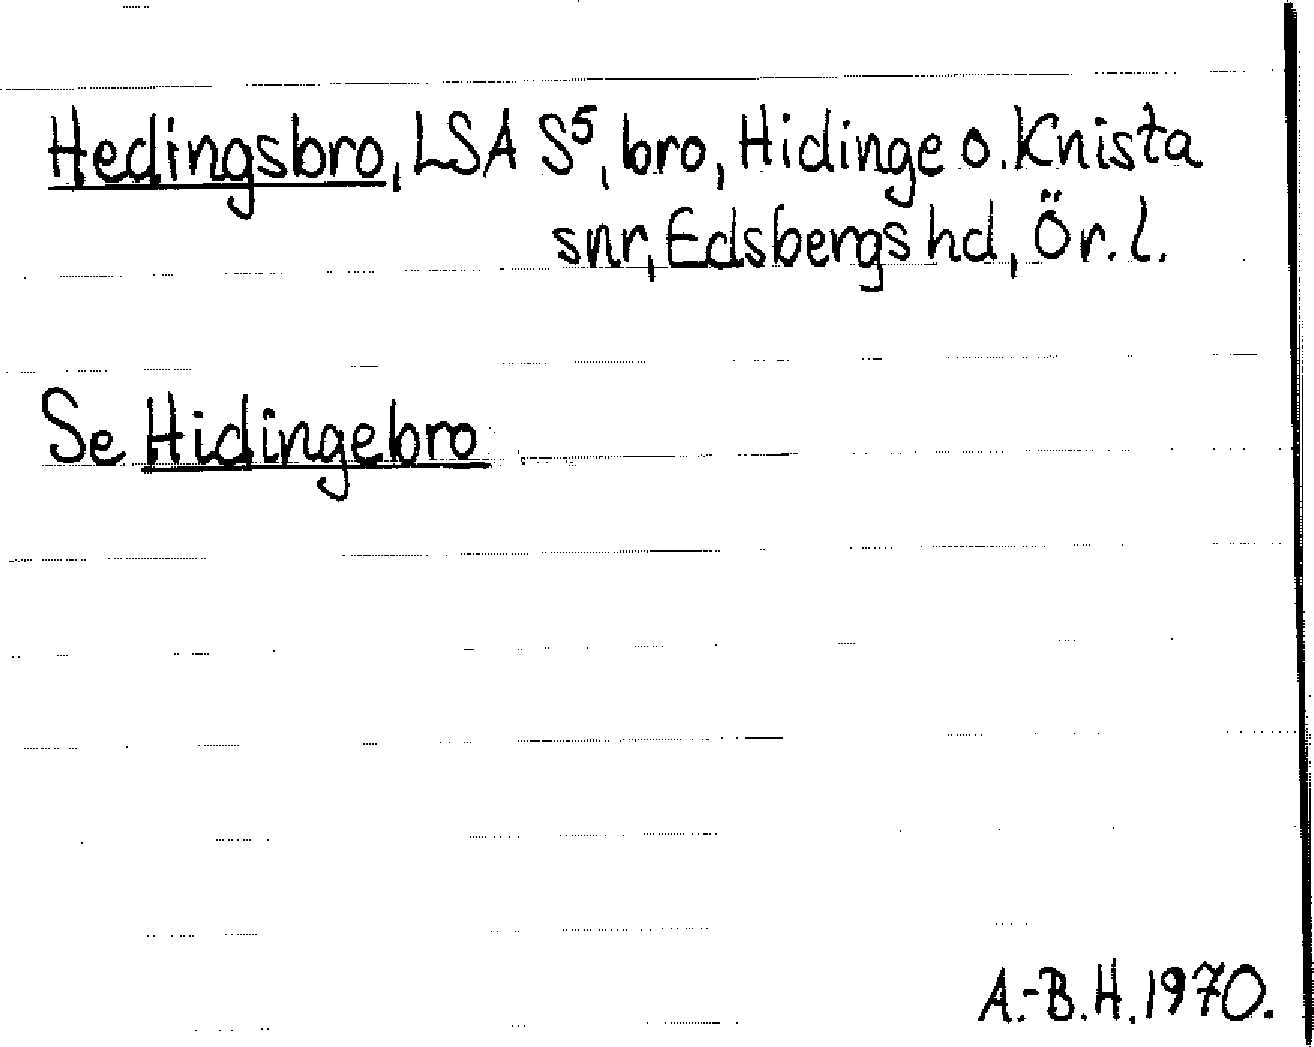 Hedingsbro, LSA S⁵, bro, Hidinge o. Knista
snr, Edsbergs hd, Ör. l.
Se Hidingebro
A.-B.H. 1970.